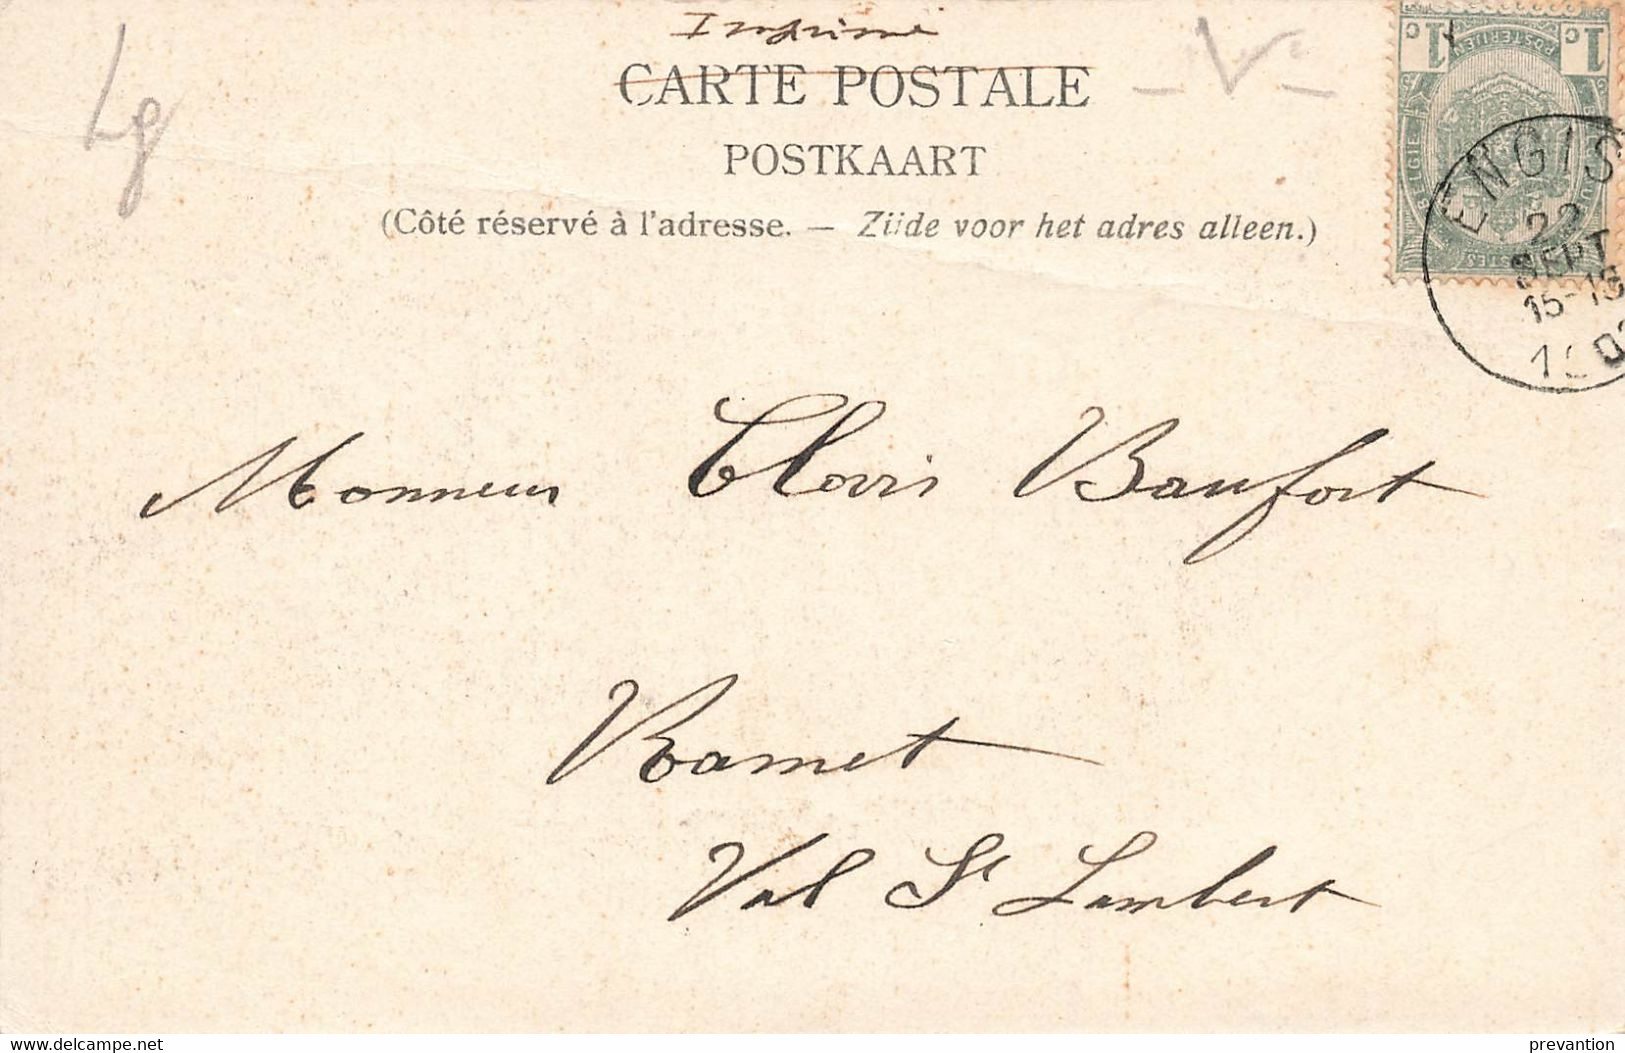 Imprimé
Lg
CARTE POSTALE
POSTKAART
(Côté réservé à l'adresse. — Zijde voor het adres alleen.)
1c 1c
POSTERIJEN
BELGIE
ENGIS
22
SEPT
15-16
Monsieur Clovis Baufort
Ramet
Val St Lambert
delcampe.net
prevantion